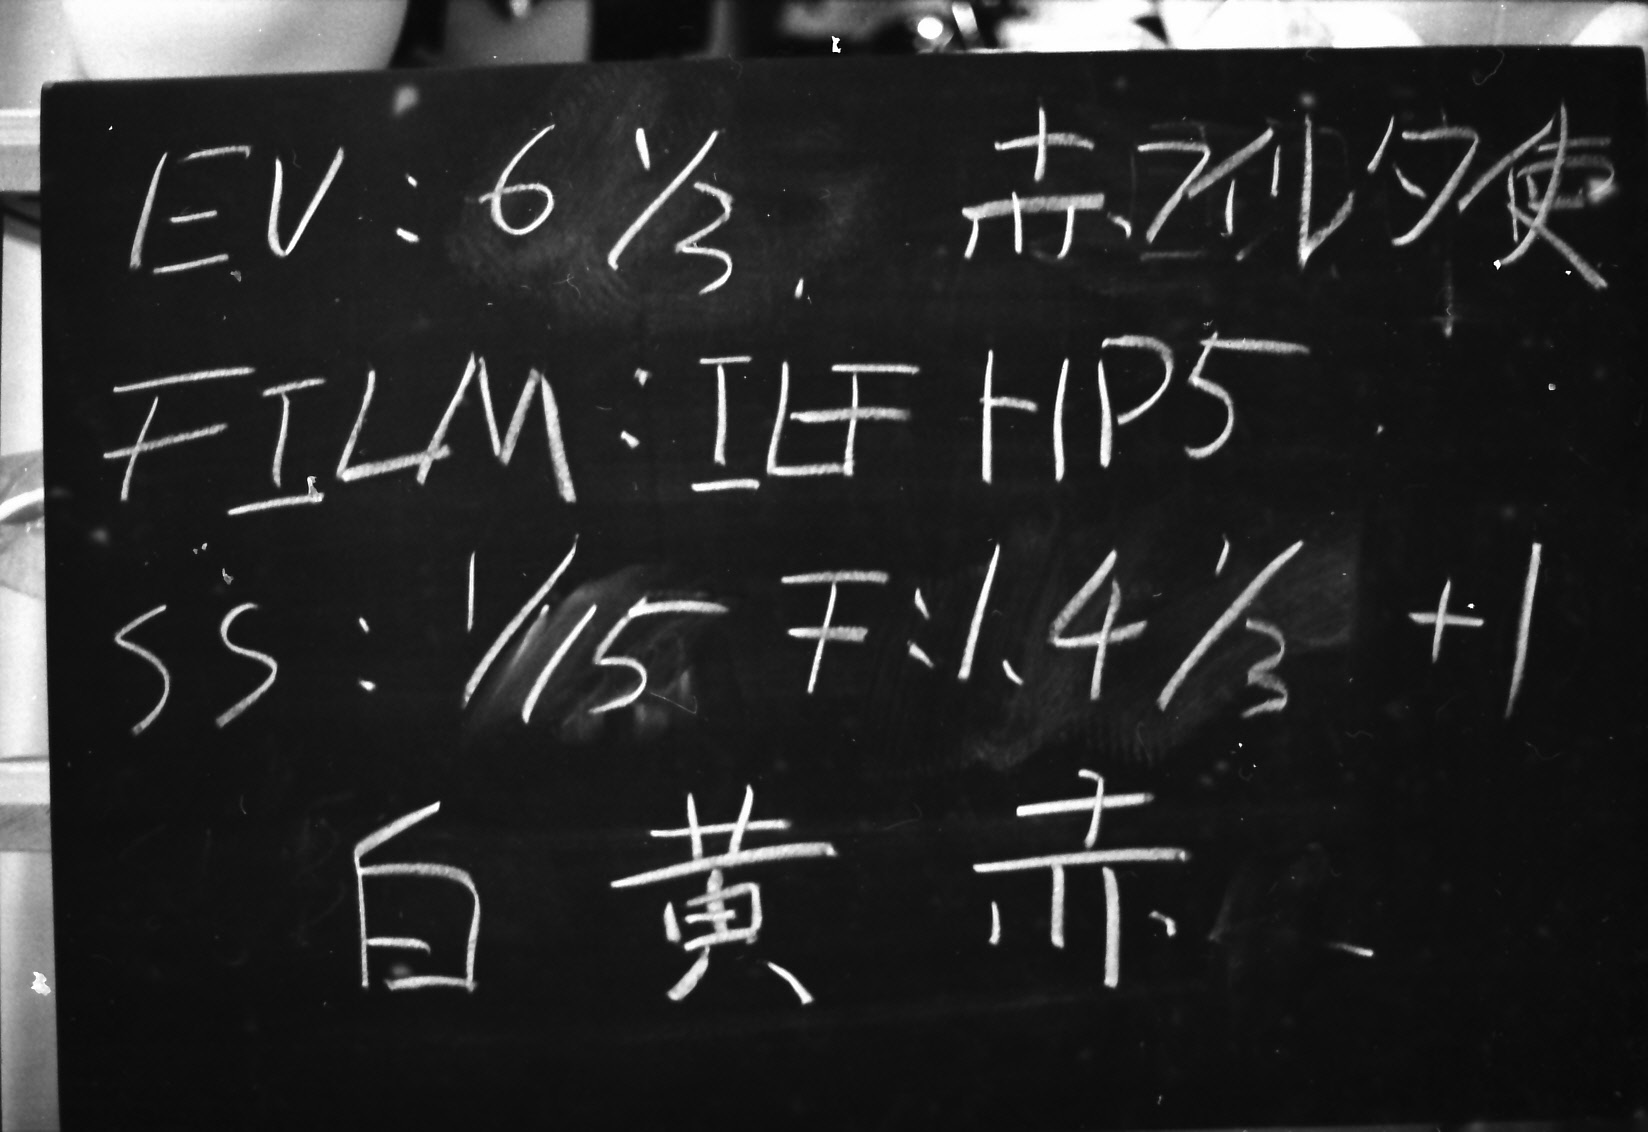 EV:6 1/3 赤フィルタ使
FILM:ILF HP5
SS:1/15 F:1.4 1/3 +1
白 黄 赤